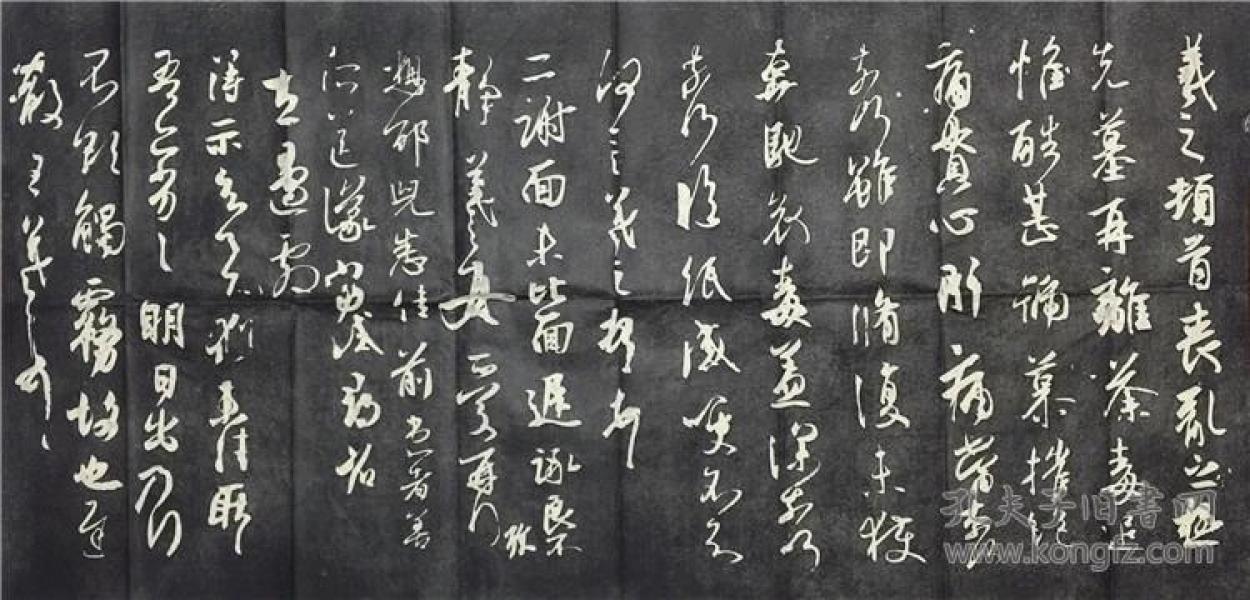 羲之頓首喪亂之極
先墓再離荼毒追
惟酷甚號慕摧絕
痛貫心肝痛當奈
奈何雖即脩復未獲
奔馳哀毒益深奈何
奈何臨紙感哽不知
何言羲之頓首
二謝面未比面遲詠良不
靜羲之女愛再拜
想邵兒悉佳前患者善
所送議當試尋
左邊劇
得示知足下猶未佳耿
吾亦劣劣明日出乃行
不欲觸霧故也遲
散王羲之頓首
孔夫子旧书网
www.kongfz.com